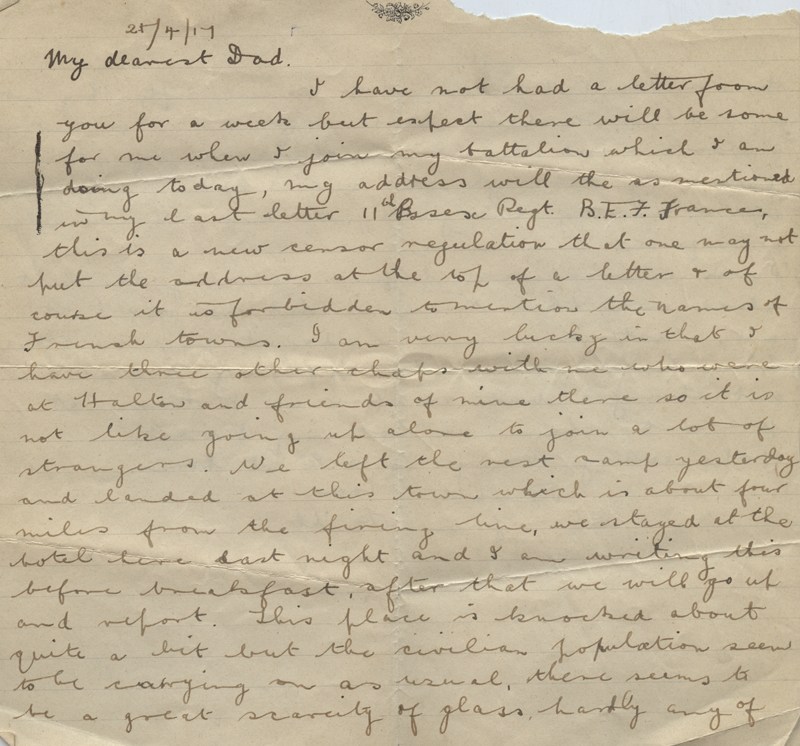 25/4/17
My dearest Dad.
I have not had a letter from
you for a week but expect there will be some
for me when I join my battalion which I am
doing today, my address will the as mentioned
in my last letter 11th Essex Regt. B.E.F. France,
this is a new censor regulation that one may not
put the address at the top of a letter & of
course it is forbidden to mention the names of
French towns. I am very lucky in that I
have three other chaps with me who were
at Halton and friends of mine there so it is
not like going up alone to join a lot of
strangers. We left the rest camp yesterday
and landed at this town which is about four
miles from the firing line, we stayed at the
hotel here last night and I am writing this
before breakfast, after that we will go up
and report. This place is knocked about
quite a bit but the civilian population seem
to be carrying on as usual, there seems to
be a great scarcity of glass, hardly any of